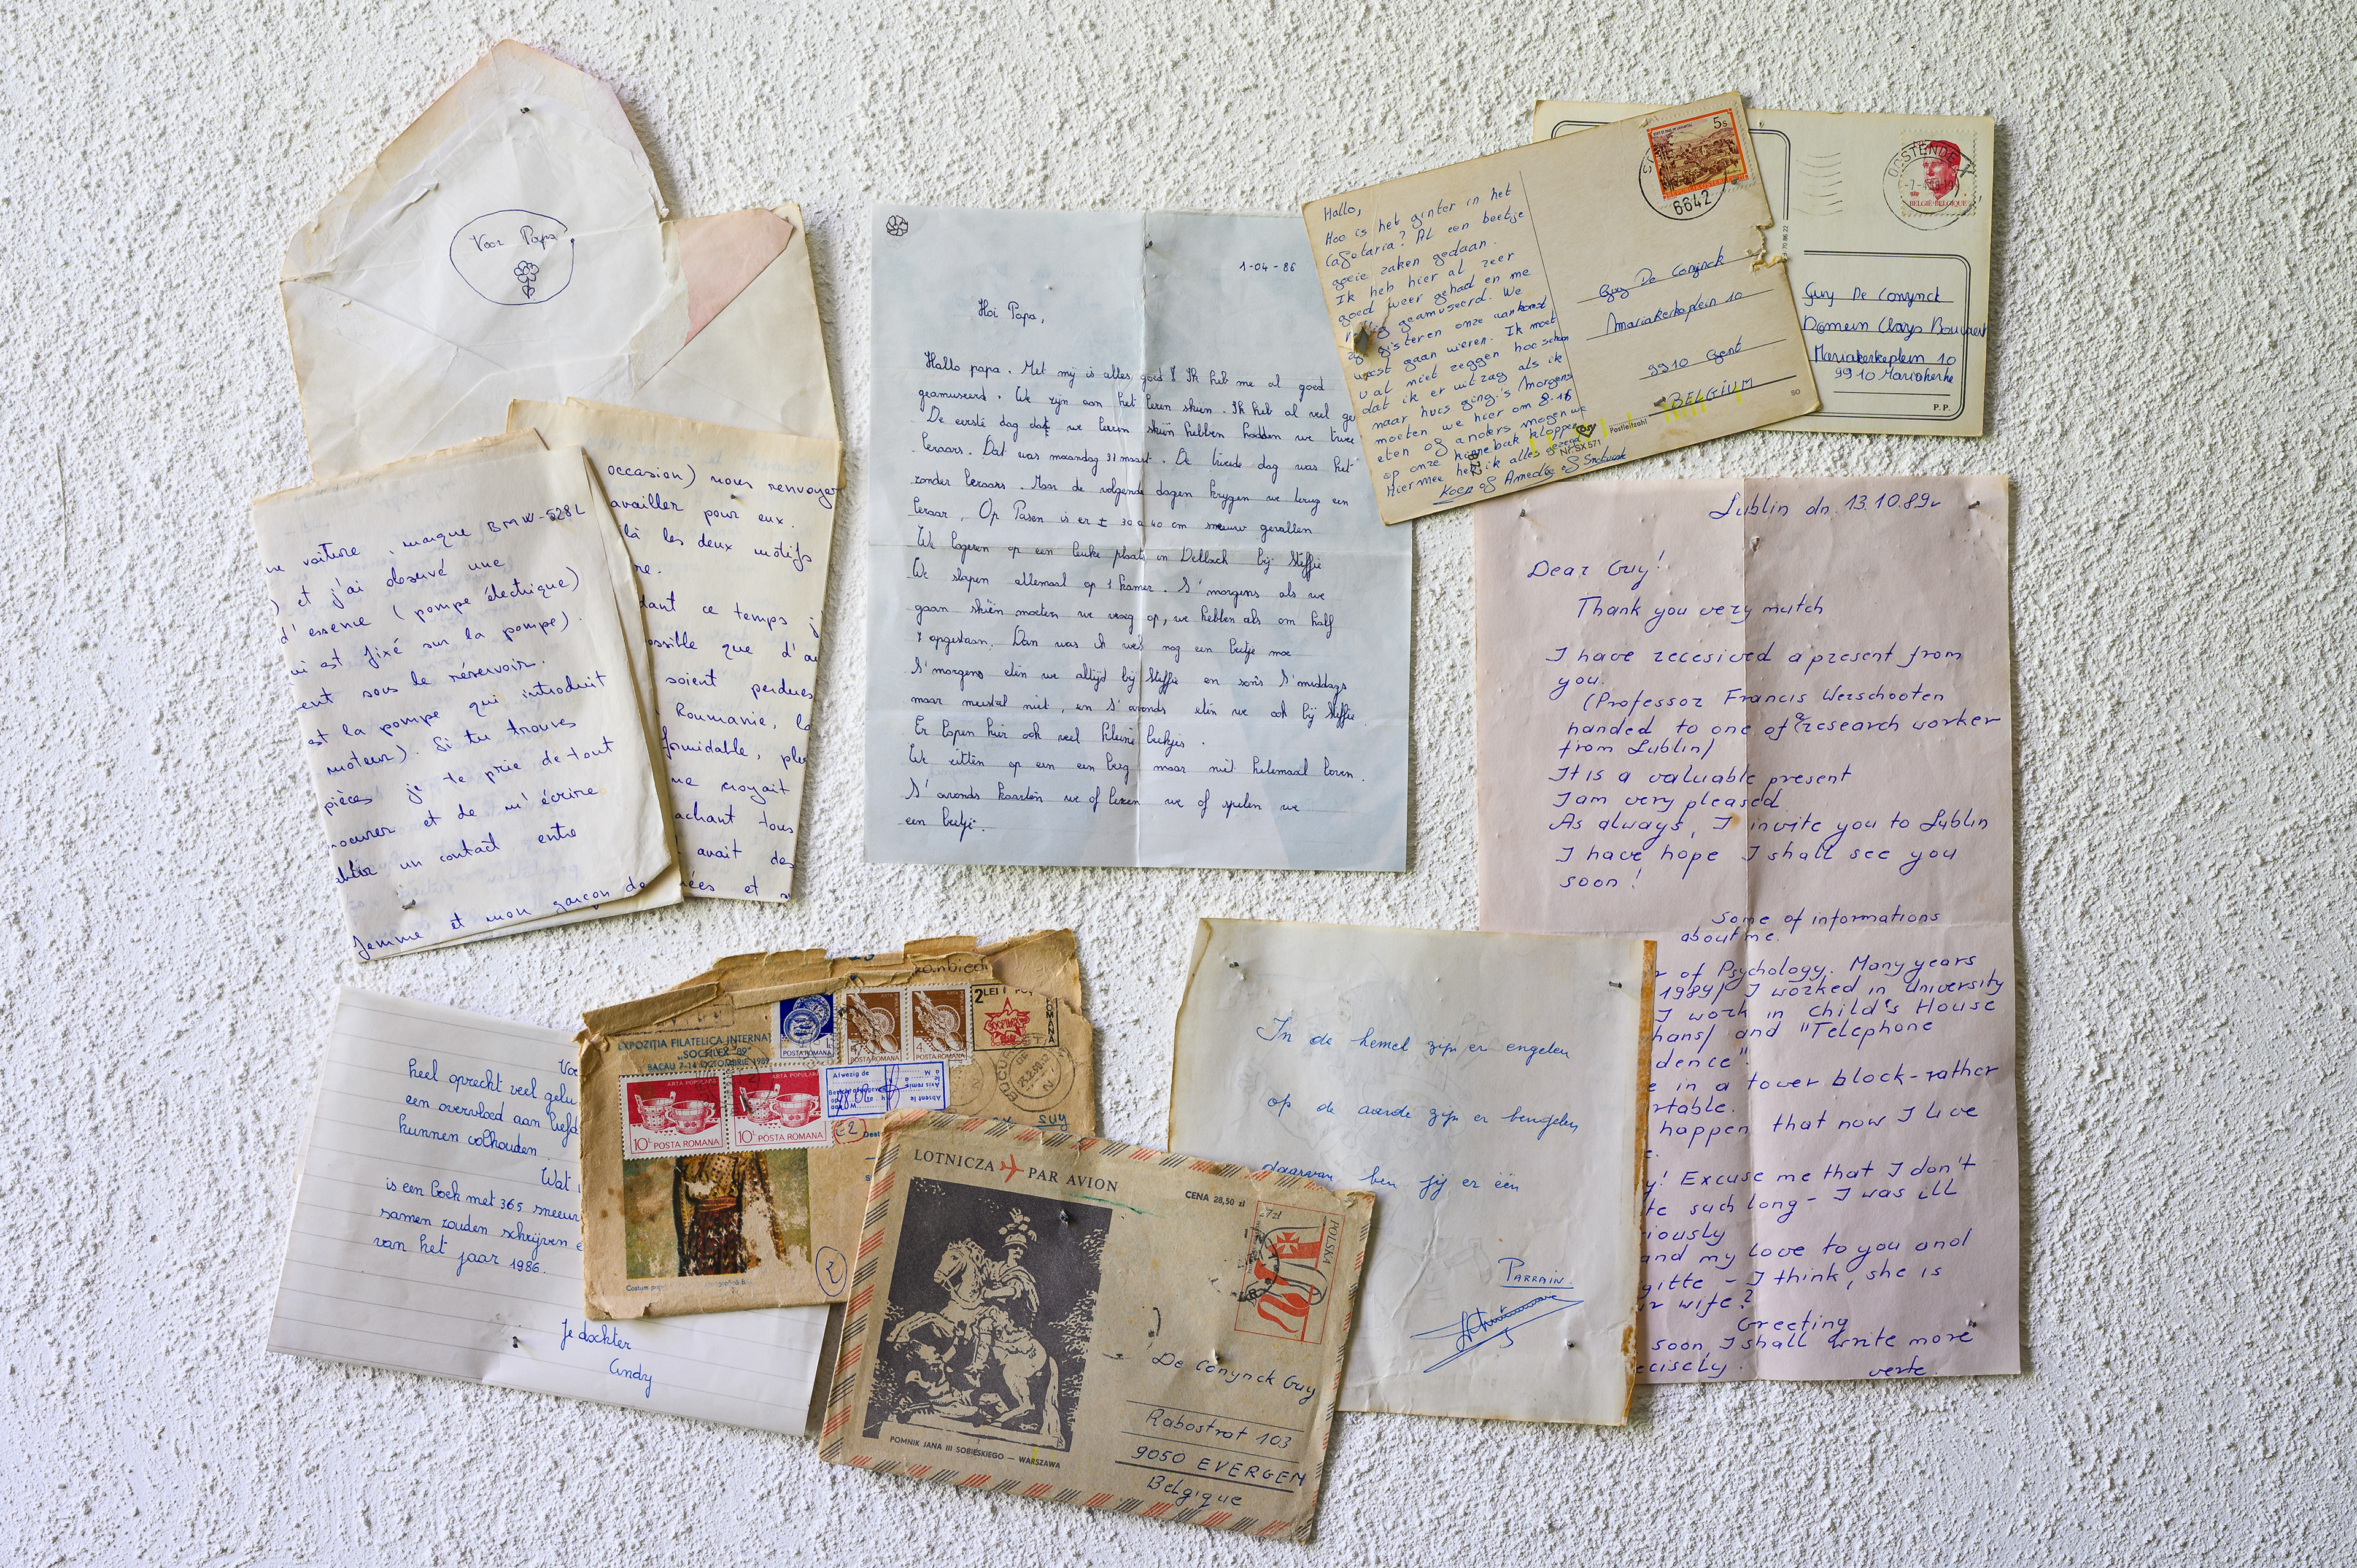 Voor Papa
occasion) nous renvoyer
availler pour eux.
là les deux motifs
re.
dant ce temps j
ossible que d'au
soient perdues
Roumanie, la
formidable, plu
me croyait
achant tous
avait des
ées et s
ne voiture, marque BMW-528L
) et j'ai observé une
d'essence (pompe électrique)
ui est fixé sur la pompe).
ent sous le réservoir.
est la pompe qui introduit
moteur). Si tu trouves
pièces je te prie de tout
ocurer et de m'écrire
ablir un contact entre
femme et mon garçon de
1-04-86
Hoi Papa,
Hallo papa. Met mij is alles goed Ik heb me al goed
geamuseerd. We zijn aan het leren skiën. Ik heb al veel ge
De eerste dag dat we leren skiën hebben hadden we twee
leraars. Dat was maandag 31 maart. De tweede dag was het
zonder leraars. Maar de volgende dagen krygen we terug een
leraar. Op Pasen is er ± 30 a 40 cm sneeuw gevallen
We logeren op een leuke plaats in Dellach bij Steffie
We slapen allemaal op 1 kamer. S'morgens als we
gaan skiën moeten we vroeg op, we hebben als om half
7 opgestaan. Dan was ik wel nog een beetje moe
S'morgens eten we altijd bij Steffie en soms S'middags
maar meestal niet, en S'avonds eten we ook bij Steffie.
Er lopen hier ook veel kleine beekjes.
We zitten op een een berg maar niet helemaal boven.
S'avonds kaarten we of lezen we of spelen we
een beetje.
Hallo,
Hoe is het ginter in het
Cafetaria? Al een beetje
goeie zaken gedaan.
Ik heb hier al zeer
goed weer gehad en me
geamuseerd. We
zijn gisteren onze aankomst
weest gaan vieren. Ik moet
u al niet zeggen hoe schoon
dat ik er uitzag als ik
naar huis ging. 's Morgens
moeten we hier om 8.16
eten of anders mogen we
op onze kinnebak kloppen
Hiermee heb ik alles gezegd
Koen of Amedée of
5s
6642
Guy De Conijnck
Mariakerkeplein 10
9910 Gent
BELGIUM
Postleitzahl
Nr. SX 571
OOSTENDE
BELGIË-BELGIQUE
Guy De Conynck
Domein Clays Bouuaert
Mariakerkeplein 10
9910 Mariakerke
P.P.
Lublin dn. 13.10.89r
Dear Guy!
Thank you very mutch
I have recesived a present from
you.
(Professor Francis Werschooten
handed to one of research worker
from Lublin/
It is a valuable present
I am very pleased
As always, I invite you to Lublin
I have hope I shall see you
soon!
Some of informations
about me.
r of Psychology. Many years
1984/ I worked in University
I work in Child's House
hans/ and "Telephone
dence"
e in a tower block-rather
rtable.
happen that now I live
e.
y! Excuse me that I don't
te such long - I was ill
iously
and my love to you and
gitte - I think, she is
ur wife?
Greeting
soon I shall write more
ecisely. verte.
Voo
heel oprecht veel gelu
een overvloed aan liefd
kunnen volhouden.
Wat
is een boek met 365 sneeuw
samen zouden schrijven e
van het jaar 1986.
Je dochter
Cindy
anbied
EXPOZIȚIA FILATELICA INTERNAȚ
"SOCFILEX '89"
BACAU 7-14 OCTOMBRIE 1989
POSTA ROMANA
POSTA ROMANA
4L POSTA ROMANA
2 LEI
ROMANA
ARTA POPULARA
10L POSTA ROMANA
ARTA POPULARA
10L POSTA ROMANA
Afwezig de
Absent le
Avis remis
Dest
Guy
Costum pop
LOTNICZA PAR AVION
CENA 28,50 zł
27zł
POLSKA
POMNIK JANA III SOBIESKIEGO — WARSZAWA
De Conynck Guy
Rabostrat 103
9050 EVERGEM
Belgique
In de hemel zijn er engelen
op de aarde zijn er bengelen
daarvan ben jij er één
PARRAIN.